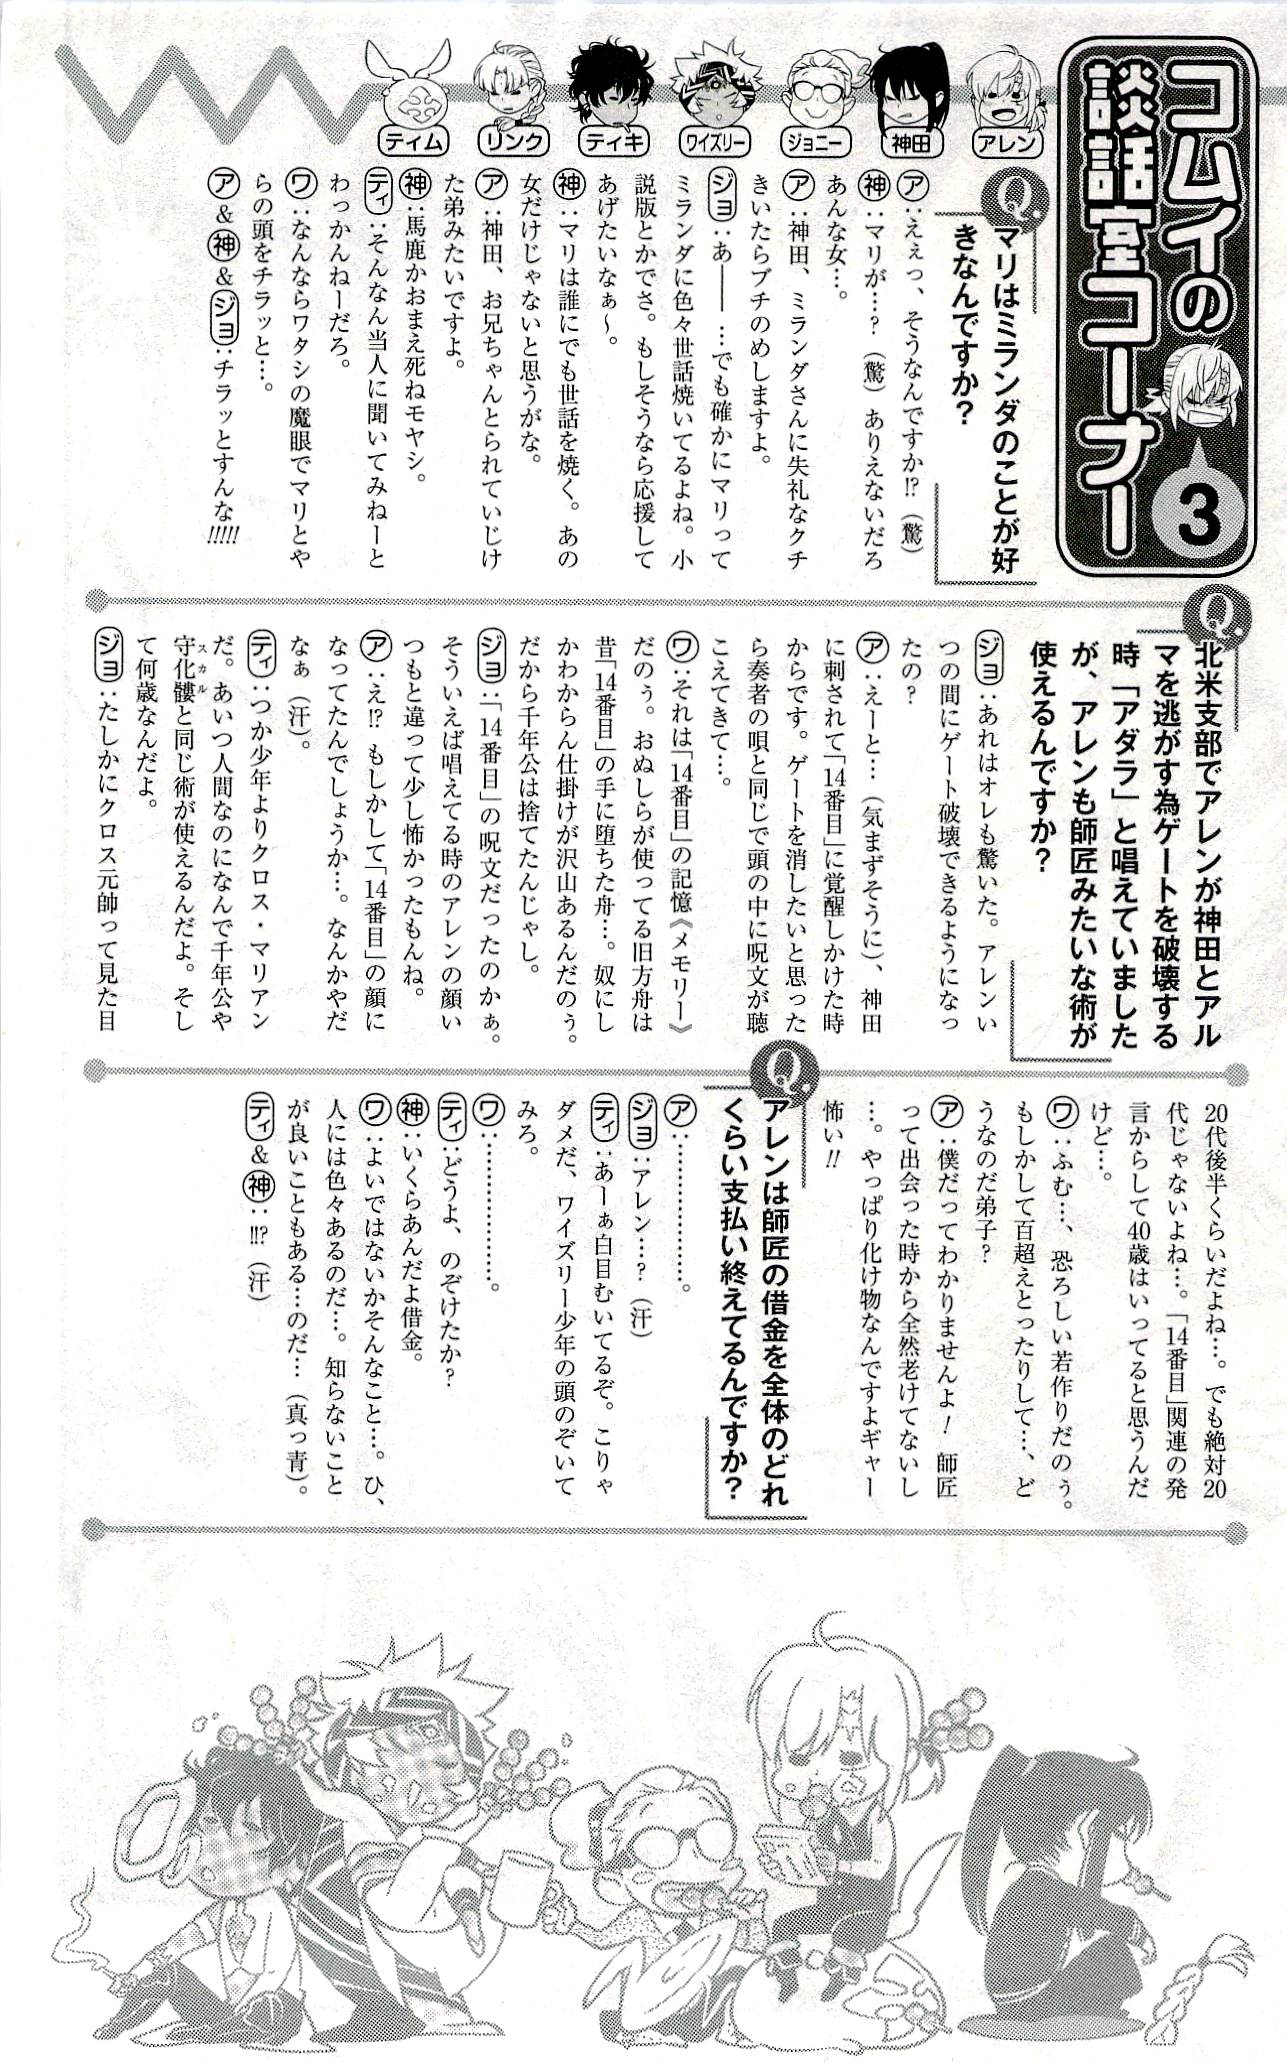 コムイの
談話室コーナー
3
アレン
神田
ジョニー
ワイズリー
ティキ
リンク
ティム
Q.
マリはミランダのことが好
きなんですか？
ア：えぇっ、そうなんですか!?（驚）
神：マリが…？（驚）ありえないだろ
あんな女…。
ア：神田、ミランダさんに失礼なクチ
きいたらブチのめしますよ。
ジョ：あ――…でも確かにマリって
ミランダに色々世話焼いてるよね。小
説版とかでさ。もしそうなら応援して
あげたいなぁ～。
神：マリは誰にでも世話を焼く。あの
女だけじゃないと思うがな。
ア：神田、お兄ちゃんとられていじけ
た弟みたいですよ。
神：馬鹿かおまえ死ねモヤシ。
ティ：そんなん当人に聞いてみねーと
わっかんねーだろ。
ワ：なんならワタシの魔眼でマリとや
らの頭をチラッと…。
ア＆神＆ジョ：チラッとすんな!!!!!
Q.
北米支部でアレンが神田とアル
マを逃がす為ゲートを破壊する
時「アダラ」と唱えていました
が、アレンも師匠みたいな術が
使えるんですか？
ジョ：あれはオレも驚いた。アレンい
つの間にゲート破壊できるようになっ
たの？
ア：えーと…（気まずそうに）、神田
に刺されて「14番目」に覚醒しかけた時
からです。ゲートを消したいと思った
ら奏者の唄と同じで頭の中に呪文が聴
こえてきて…。
ワ：それは「14番目」の記憶《メモリー》
だのぅ。おぬしらが使ってる旧方舟は
昔「14番目」の手に堕ちた舟…。奴にし
かわからん仕掛けが沢山あるんだのぅ。
だから千年公は捨てたんじゃし。
ジョ：「14番目」の呪文だったのかぁ。
そういえば唱えてる時のアレンの顔い
つもと違って少し怖かったもんね。
ア：え!? もしかして「14番目」の顔に
なってたんでしょうか…。なんかやだ
なぁ（汗）。
ティ：つか少年よりクロス・マリアン
だ。あいつ人間なのになんで千年公や
守化髏と同じ術が使えるんだよ。そし
スカル
て何歳なんだよ。
ジョ：たしかにクロス元帥って見た目
20代後半くらいだよね…。でも絶対20
代じゃないよね…。「14番目」関連の発
言からして40歳はいってると思うんだ
けど…。
ワ：ふむ…、恐ろしい若作りだのぅ。
もしかして百超えとったりして…、ど
うなのだ弟子？
ア：僕だってわかりませんよ！ 師匠
って出会った時から全然老けてないし
…。やっぱり化け物なんですよギャー
怖い!!
Q.
アレンは師匠の借金を全体のどれ
くらい支払い終えてるんですか？
ア：………………。
ジョ：アレン…？（汗）
ティ：あーぁ白目むいてるぞ。こりゃ
ダメだ、ワイズリー少年の頭のぞいて
みろ。
ワ：………………。
ティ：どうよ、のぞけたか？
神：いくらあんだよ借金。
ワ：よいではないかそんなこと…。ひ、
人には色々あるのだ…。知らないこと
が良いこともある…のだ…（真っ青）。
ティ＆神：!!?（汗）